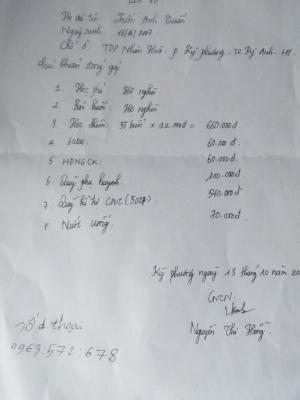 Họ và tên: Trần Anh Tuấn
Ngày sinh: 16/11/2007
Chỗ ở: TDP Nhân Hoà - p Kỳ phương - TX Kỳ Anh - HT.
khoản đóng góp
1. Học phí: Hộ nghèo
2. Hộ nghèo
3. Học thêm: 55 buổi × 12.000đ = 660.000đ.
4 60.000đ.
5 HĐNGCK. 60.000đ.
6. Quỹ phụ huynh 100.000đ
7. Quỹ 240.000đ.
8. Nước uống: 70.000đ.
Kỳ phương ngày 13 tháng 10 năm 20
GVCN
Nguyễn Thị Hồng.
số đ thoại
0963:571:678